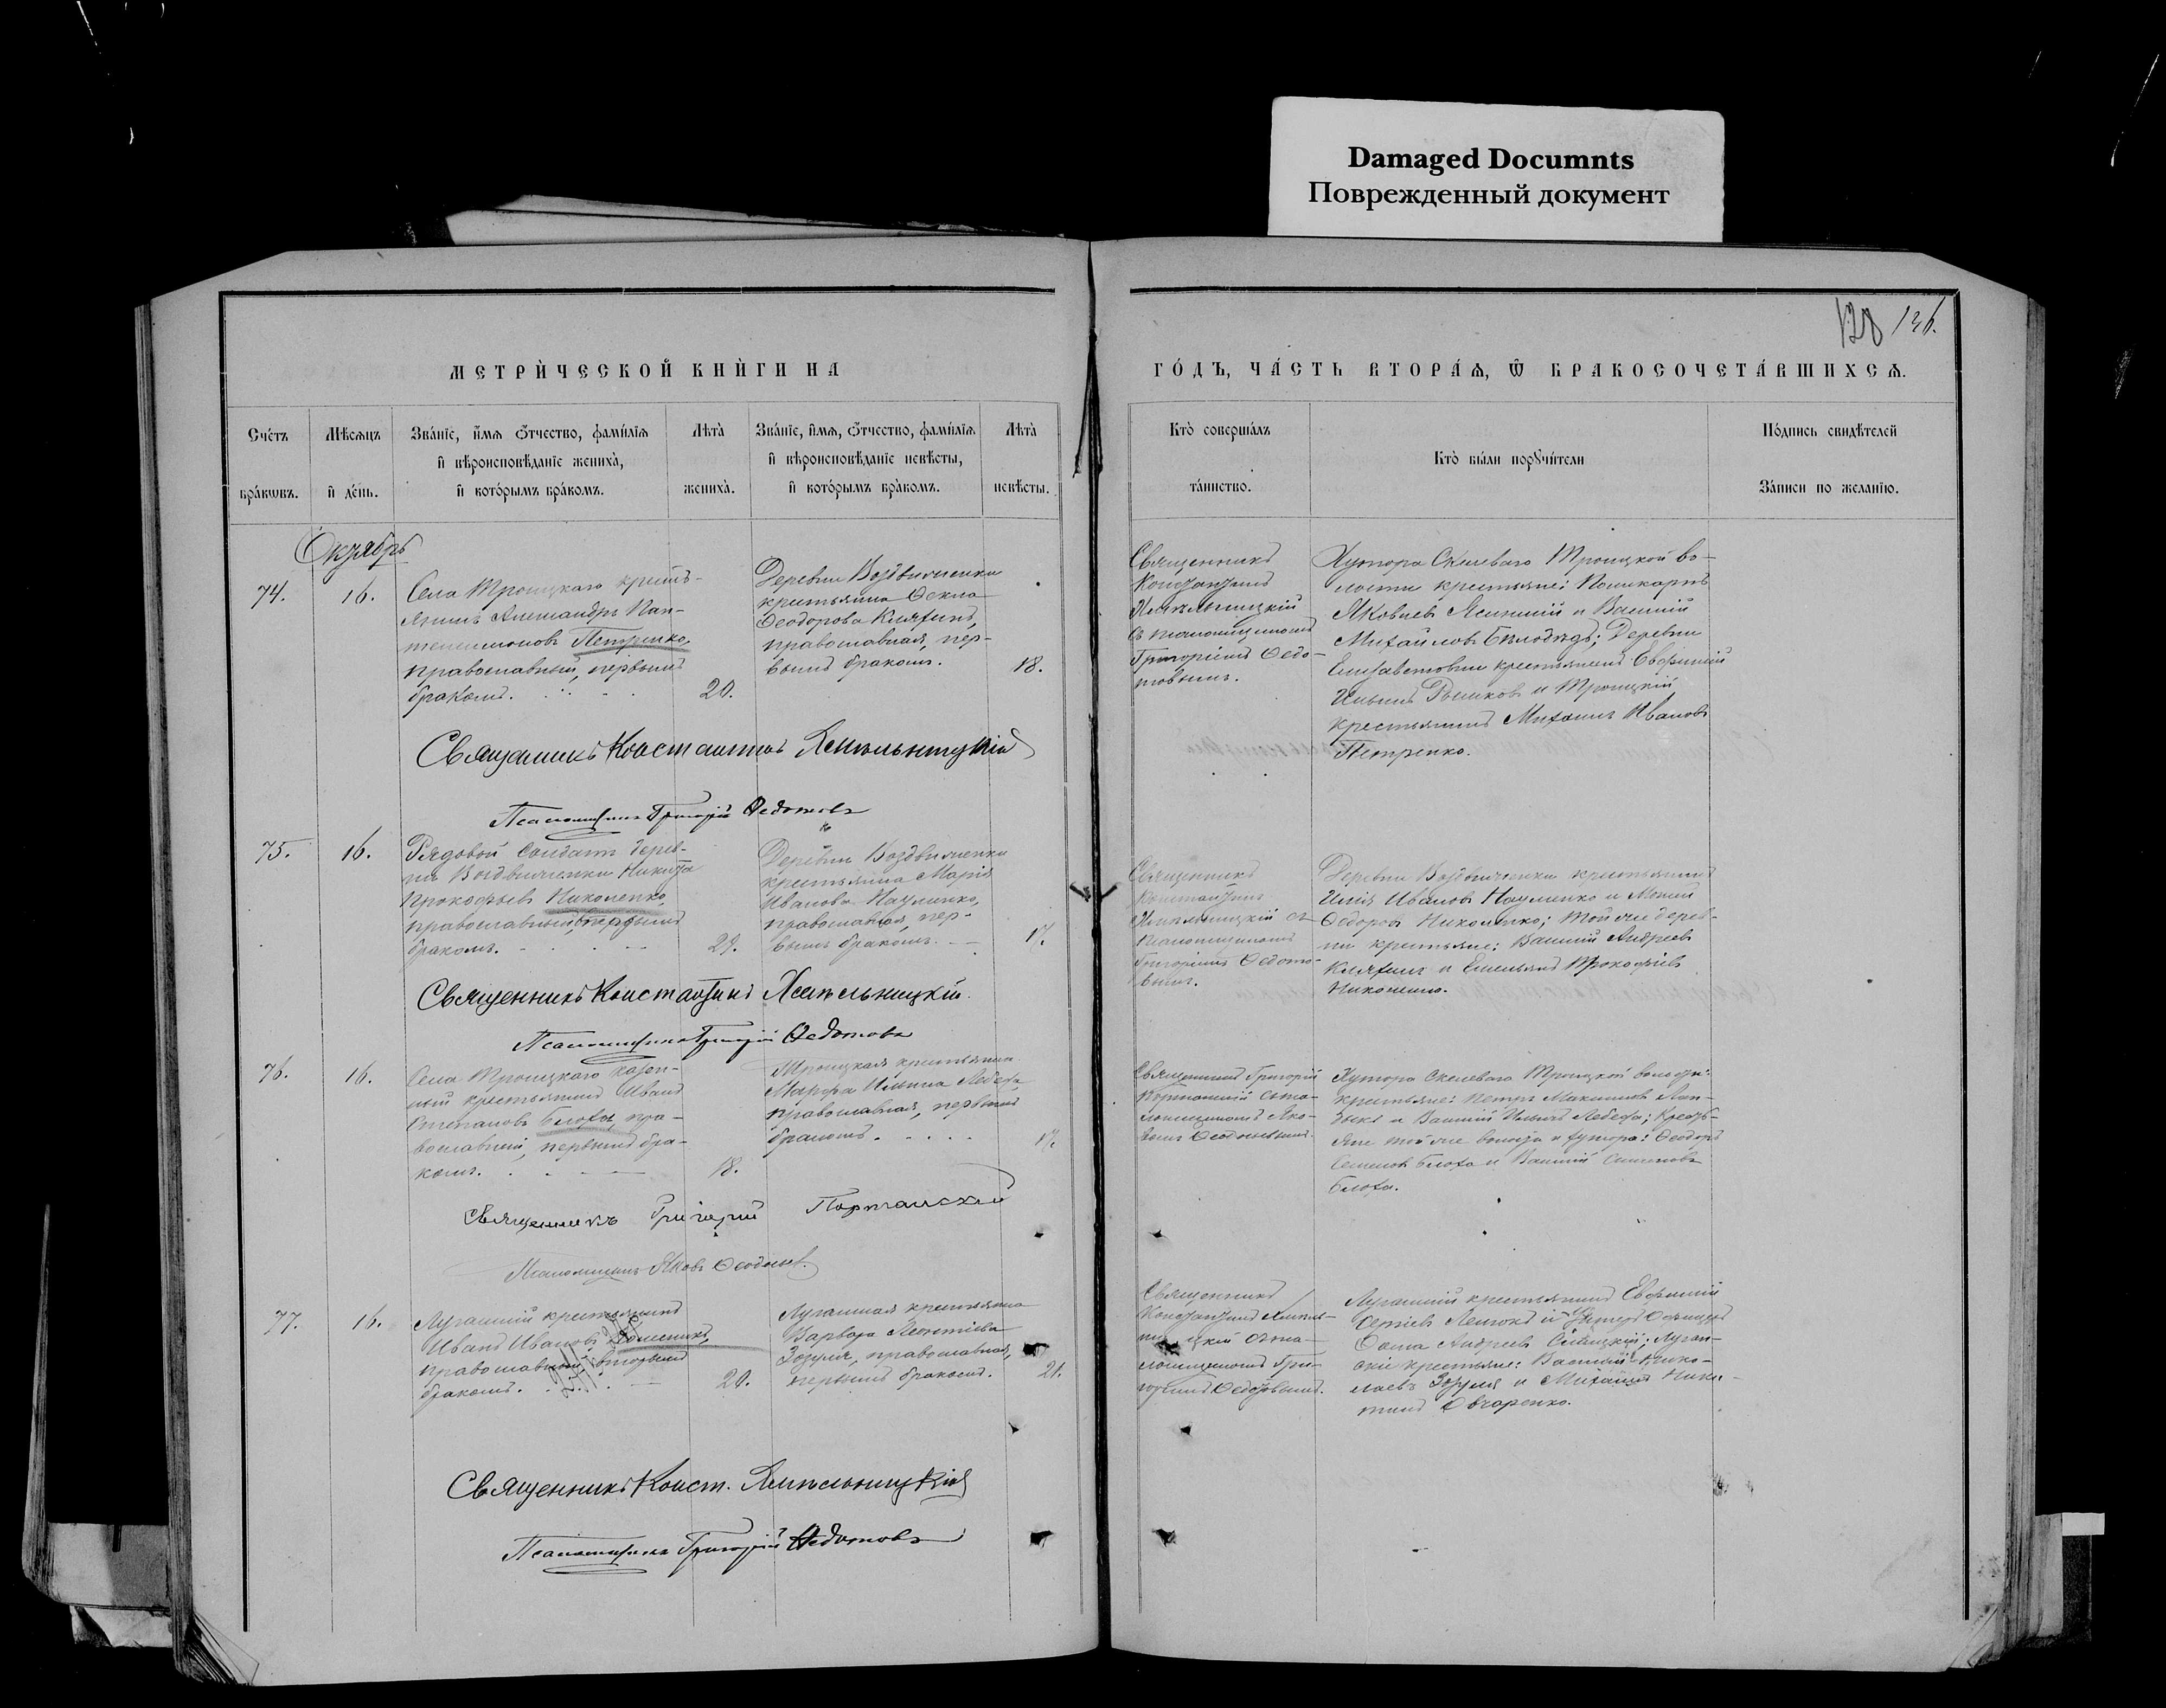 Damaged Documnts
Поврежденный документ
128 136.
МЕТРИ́ЧЕСКОЙ КНИ́ГИ НА
ГО́ДЪ, ЧА́СТЬ ВТОРА́Ѧ, Ѿ БРАКОСОЧЕТА́ВШИХСѦ.
Сче́тъ
бра́кѡвъ.
Мѣсѧцъ
и҆ де́нь.
Зва́нїе, и҆́мѧ ѻ҆́тчество, фами́лїѧ
и҆ вѣроисповѣ́данїе жениха̀,
и҆ кото́рымъ бра́комъ.
Лѣта̀
жениха̀.
Зва́нїе, и҆́мѧ, ѻ҆́тчество, фами́лїѧ
и҆ вѣроисповѣ́данїе невѣ́сты,
и҆ кото́рымъ бра́комъ.
Лѣта̀
невѣ́сты.
Кто̀ соверша́лъ
та́инство.
Кто̀ бы́ли порꙋчи́тели
По́дпись свидѣ́телей
За́писи по жела́нїю.
Октябрь
74.
16.
Села Троицкаго кресть-
янинъ Александръ Пан-
телеимоновъ Петренко,
православный, первымъ
бракомъ.
20.
Деревни Воздвиженки
крестьянка Фекла
Феодорова Кляхина,
православная, пер-
вымъ бракомъ.
18.
Священникъ
Константинъ
Хмельницкій
съ псаломщикомъ
Григоріемъ Федо-
товымъ.
Хутора Скелеваго Троицкой во-
лости крестьяне: Поликарпъ
Яковлевъ и Василій
Михайловъ Бѣлодѣдъ; Деревни
Елизаветовки крестьянинъ Евфимій
Ильинъ и Троицкій
крестьянинъ Михаилъ Ивановъ
Петренко.
Священникъ Константинъ Хмѣльницкій
Псаломщикъ Григорій Федотовъ
75.
16.
Рядовой солдатъ дерев-
ни Воздвиженки Никита
Прокофьевъ Николенко,
православный, первымъ
бракомъ.
29.
Деревни Воздвиженки
крестьянка Марія
Иванова Науменко,
православная, пер-
вымъ бракомъ.
17.
Священникъ
Константинъ
Хмѣльницкій съ
псаломщикомъ
Григоріемъ Федото-
вымъ.
Деревни Воздвиженки крестьянинъ
Илія Ивановъ Науменко и
Федоровъ Николенко; той же дерев-
ни крестьяне: Василій Андреевъ
Кляхинъ и Емельянъ Прокофіевъ
Николенко.
Священникъ Константинъ Хмѣльницкій.
Псаломщикъ Григорій Федотовъ
76.
16.
Села Троицкаго казен-
ный крестьянинъ Иванъ
Степановъ Блоха, пра-
вославный, первымъ бра-
комъ.
18.
Троицкая крестьянка
Марфа Ильина
православная, первымъ
бракомъ.
17.
Священникъ Григорій
Порташскій съ пса-
ломщикомъ Яко-
вомъ
Хутора Скелеваго Троицкой волости
крестьяне: Петръ Максимовъ
и Василій Ильинъ; Кресть-
яне той же волости и хутора: Феодоръ
Семеновъ Блоха и Василій
Блоха.
Священникъ Григорій Порташскій
Псаломщикъ Яковъ
77.
16.
Луганскій крестьянинъ
Иванъ Ивановъ
православный, вторымъ
бракомъ.
20.
Луганская крестьянка
Варвара Леонтіева
Зозуля, православная,
первымъ бракомъ.
21.
Священникъ
Константинъ Хмѣль-
ницкій съ пса-
ломщикомъ Гри-
горіемъ Федотовымъ.
Луганскій крестьянинъ Евфимій
Сергіевъ и
Андреевъ; Луган-
скіе крестьяне: Василій Нико-
лаевъ Зозуля и Михаилъ Ники-
тинъ Овчаренко.
Священникъ Конст. Хмѣльницкій
Псаломщикъ Григорій Федотовъ